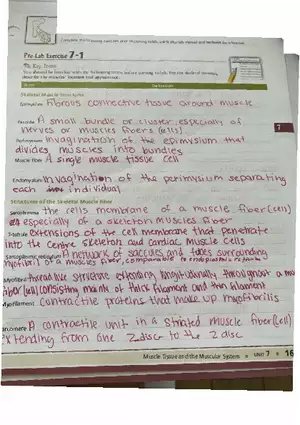 Complete the following exercises prior to coming to lab, using your lab manual and textbook for reference.
Pre-Lab Exercise 7-1
Key Terms
You should be familiar with the following terms before coming to lab.
Term
Definition
Skeletal Muscle Structures
Epimysium Fibrous connective tissue around muscle
Fascicle A small bundle or cluster, especially of
nerves or muscles fibers (cells)
7
Perimysium Invagination of the epimysium that
divides muscles into bundles
Muscle Fiber A single muscle tissue cell
Endomysium Invagination of the perimysium separating
each individual
Structures of the Skeletal Muscle Fiber
Sarcolemma the cells membrane of a muscle fiber (cell)
especially of a skeleton muscles fiber
T-tubule extensions of the cell membrane that penetrate
into the centre skeleton and cardiac muscle cells
Sarcoplasmic reticulum A network of saccules and tubes surrounding
myofibril of a muscles fiber, comparable to endoplasmic
Myofibril threadlike structure extending longitudinally throughout a muscle
fiber (cell) consisting mainly of thick filament and thin filament
Myofilament contractile proteins that make up myofibrils
Sarcomere A contractile unit in a striated muscle fiber (cell)
extending from one Z disc to the Z disc
Muscle Tissue and the Muscular System UNIT 7 16